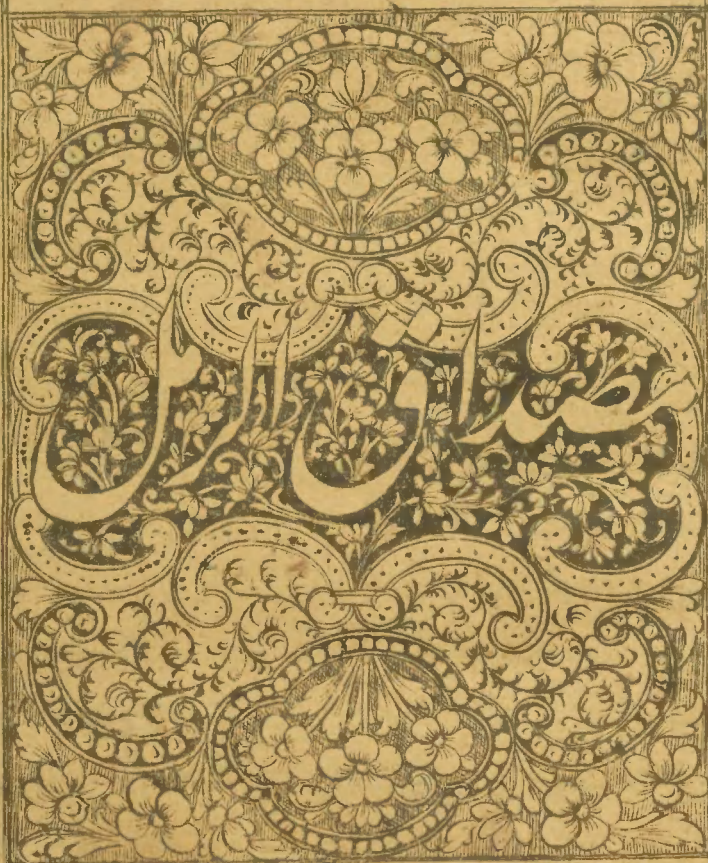 مصداق الرمل